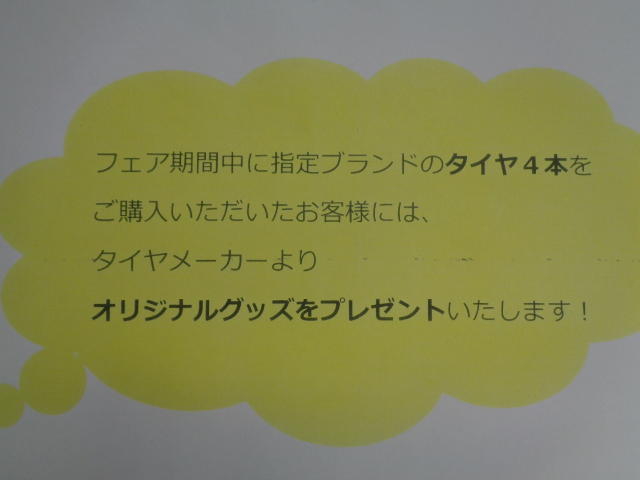 フェア期間中に指定ブランドのタイヤ４本を
ご購入いただいたお客様には、
タイヤメーカーより
オリジナルグッズをプレゼントいたします！